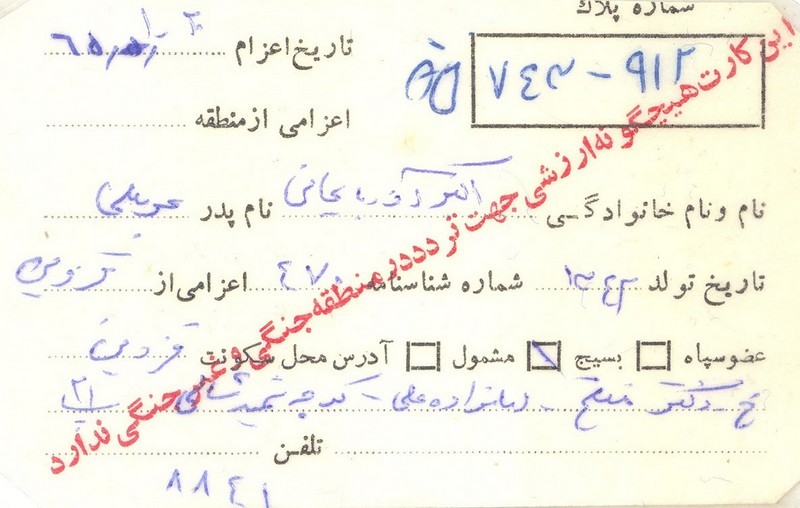 شماره پلاك
تاریخ اعزام
۷۴۳-۹۱۲
اعزامی ازمنطقه
نام ونام خانوادگی اکبر آذربایجانی نام پدر
تاریخ تولد ۱۳۴۳ شماره شناسنامه ۴۷۰ اعزامی‌از قزوین
عضوسپاه بسیج مشمول آدرس محل سکونت قزوین
خ دکتر مفتح - امامزاده علی - کوچه شهید
تلفن
۸۸۴۱
این کارت هیچگونه‌ارزشی جهت تردددرمنطقه‌جنگی وغیرجنگی ندارد